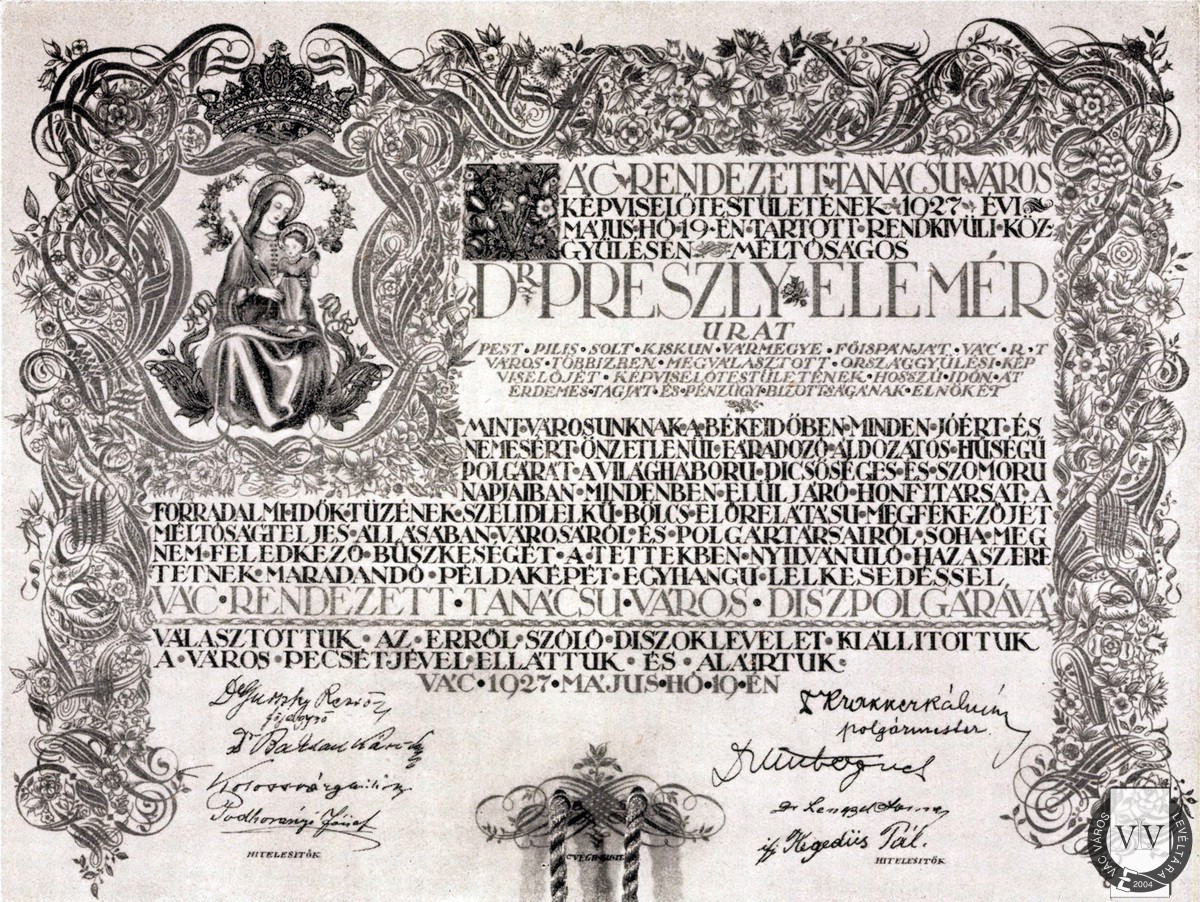 VÁC RENDEZETT TANÁCSU VÁROS
KÉPVISELŐTESTÜLETÉNEK 1927 ÉVI
MÁJUS HÓ 19-ÉN TARTOTT RENDKIVÜLI KÖZ-
GYŰLÉSEN MÉLTÓSÁGOS
DR. PRESZLY ELEMÉR
URAT
PEST • PILIS • SOLT • KISKUN VÁRMEGYE • FŐISPÁNJÁT • VÁC • R • T
VÁROS • TÖBBIZBEN • MEGVÁLASZTOTT • ORSZÁGGYÜLÉSI • KÉP
VISELŐJÉT • KÉPVISELŐTESTÜLETÉNEK • HOSSZÚ • IDŐN • ÁT
ÉRDEMES • TAGJÁT • ÉS • PÉNZÜGYI • BIZOTTSÁGÁNAK • ELNÖKÉT
MINT • VÁROSUNKNAK • A • BÉKE IDŐBEN • MINDEN • JÓÉRT • ÉS
NEMESÉRT • ÖNZETLENÜL • FÁRADOZÓ • ÁLDOZATOS • HŰSÉGŰ
POLGÁRÁT • A VILÁGHÁBORU • DICSŐSÉGES • ÉS • SZOMORU
NAPJAIBAN • MINDENBEN • ELÜL JÁRÓ • HONFITÁRSÁT • A
FORRADALMI • IDŐK • TÜZÉNEK • SZELIDLELKÜ • BÖLCS • ELŐRELÁTÁSU • MEGFÉKEZŐJÉT
MÉLTÓSÁGTELJES • ÁLLÁSÁBAN • VÁROSÁRÓL • ÉS • POLGÁRTÁRSAIRÓL • SOHA • MEG
NEM • FELEDKEZŐ • BÜSZKESÉGÉT • A • TETTEKBEN • NYILVÁNULÓ • HAZASZERE
TETNEK • MARADANDÓ • PÉLDAKÉPÉT • EGYHANGU • LELKESEDÉSSEL,
VÁC • RENDEZETT • TANÁCSU • VÁROS • DISZPOLGÁRÁVÁ
VÁLASZTOTTUK • AZ • ERRŐL • SZÓLÓ • DISZOKLEVELET • KIÁLLITOTTUK
A • VÁROS • PECSÉTJÉVEL • ELLÁTTUK • ÉS • ALÁIRTUK •
VÁC • 1927 • MÁJUS • HÓ • 19 • ÉN
Dr Rezső
főjegyző
Dr Károly
Podhorányi József
HITELESITŐK
Dr Krakker Kálmán
polgármester.
Dr
ifj Hegedüs Pál.
HITELESITŐK
VÁC VÁROS LEVÉLTÁRA
VVL
2004